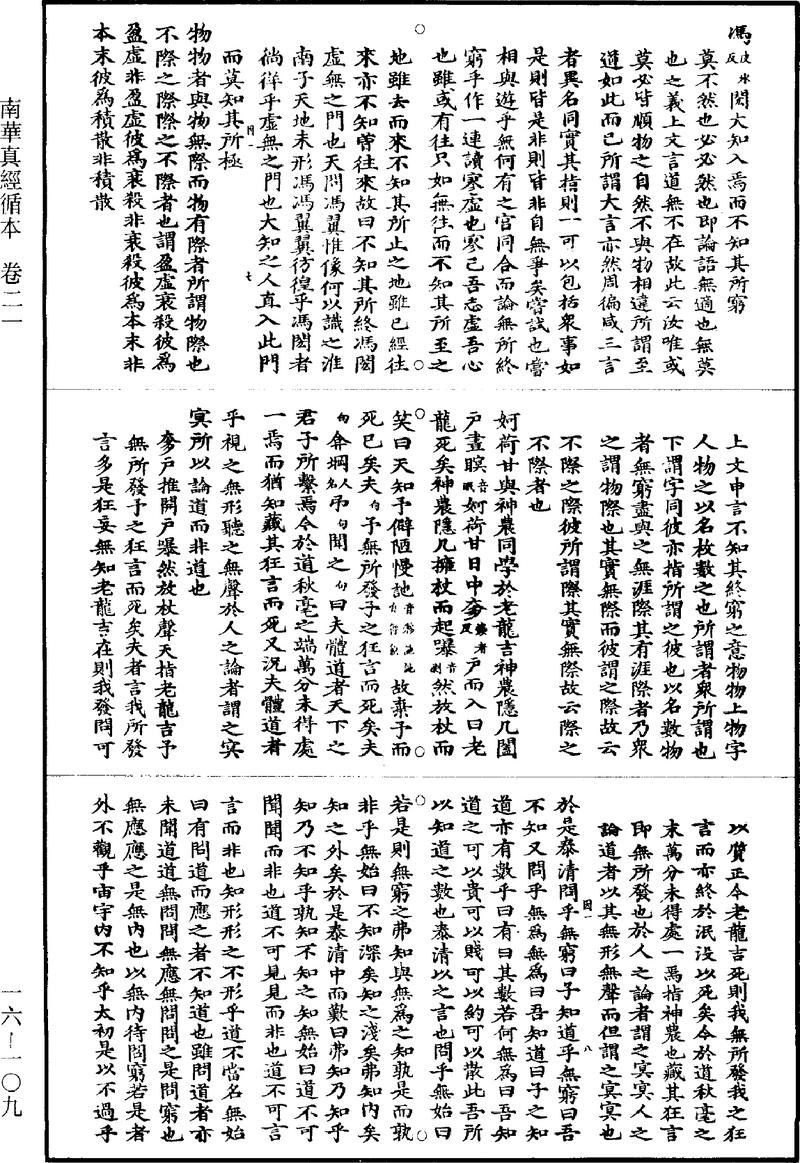 馮皮冰反閎大知入焉而不知其所窮
莫不然也必必然也即論語無適也無莫
也之義上文言道無不在故此云汝唯或
莫必皆順物之自然不與物相違所謂至
道如此而已所謂大言亦然周徧咸三言
者異名同實其指則一可以包括衆事如
是則皆是非則皆非自無爭矣嘗試也嘗
相與遊乎無何有之宮同合而論無所終
窮乎作一連讀寥虛也寥已吾志虛吾心
也雖或有往只如無往而不知其所至之
地雖去而來不知其所止之地雖已經往
來亦不知曾往來故曰不知其所終馮閎
虛無之門也天問馮翼惟像何以識之淮
南子天地未形馮馮翼翼彷徨乎馮閎者
徜徉乎虛無之門也大知之人直入此門
而莫知其所極
物物者與物無際而物有際者所謂物際也
不際之際際之不際者也謂盈虛衰殺彼爲
盈虛非盈虛彼爲衰殺非衰殺彼爲本末非
本末彼爲積散非積散
上文申言不知其終窮之意物物上物字
人物之以名枚數之也所謂者衆所謂也
下謂字同彼亦指所謂之彼也以名數物
者無窮盡與之無涯際其有涯際者乃衆
之謂物際也其實無際而彼謂之際故云
不際之際彼所謂際其實無際故云際之
不際者也
妸荷甘與神農同學於老龍吉神農隱几闔
戶晝瞑音眠妸荷甘日中奓戶而入曰老
龍死矣神農隱几擁杖而起曝音剝然放杖而
笑曰天知予僻陋慢訑故棄予而
死已矣夫句子無所發予之狂言而死矣夫
句弇堈人名弔句聞之句曰夫體道者天下之
君子所繫焉今於道秋毫之端萬分未得處
一焉而猶知藏其狂言而死又況夫體道者
乎視之無形聽之無聲於人之論者謂之冥
冥所以論道而非道也
奓戶推開戶曝然放杖聲天指老龍吉予
無所發予之狂言而死矣夫者言我所發
言多是狂妄無知老龍吉在則我發問可
以質正今老龍吉死則我無所發我之狂
言而亦終於泯没以死矣今於道秋毫之
末萬分未得處一焉指神農也藏其狂言
即無所發也於人之論者謂之冥冥人之
論道者以其無形無聲而但謂之冥冥也
於是泰清問乎無窮曰子知道乎無窮曰吾
不知又問乎無爲無爲曰吾知道曰子之知
道亦有數乎曰有曰其數若何無爲曰吾知
道之可以貴可以賤可以約可以散此吾所
以知道之數也泰清以之言也問乎無始曰
若是則無窮之弗知與無爲之知孰是而孰
非乎無始曰不知深矣知之淺矣弗知内矣
知之外矣於是泰清中而歎曰弗知乃知乎
知乃不知乎孰知不知之知無始曰道不可
聞聞而非也道不可見見而非也道不可言
言而非也知形形之不形乎道不當名無始
曰有問道而應之者不知道也雖問道者亦
未聞道道無問問無應無問問之是問窮也
無應應之是無内也以無内待問窮若是者
外不觀乎宙宇内不知乎太初是以不過乎
南華真經循本　卷二一
一六—一〇九